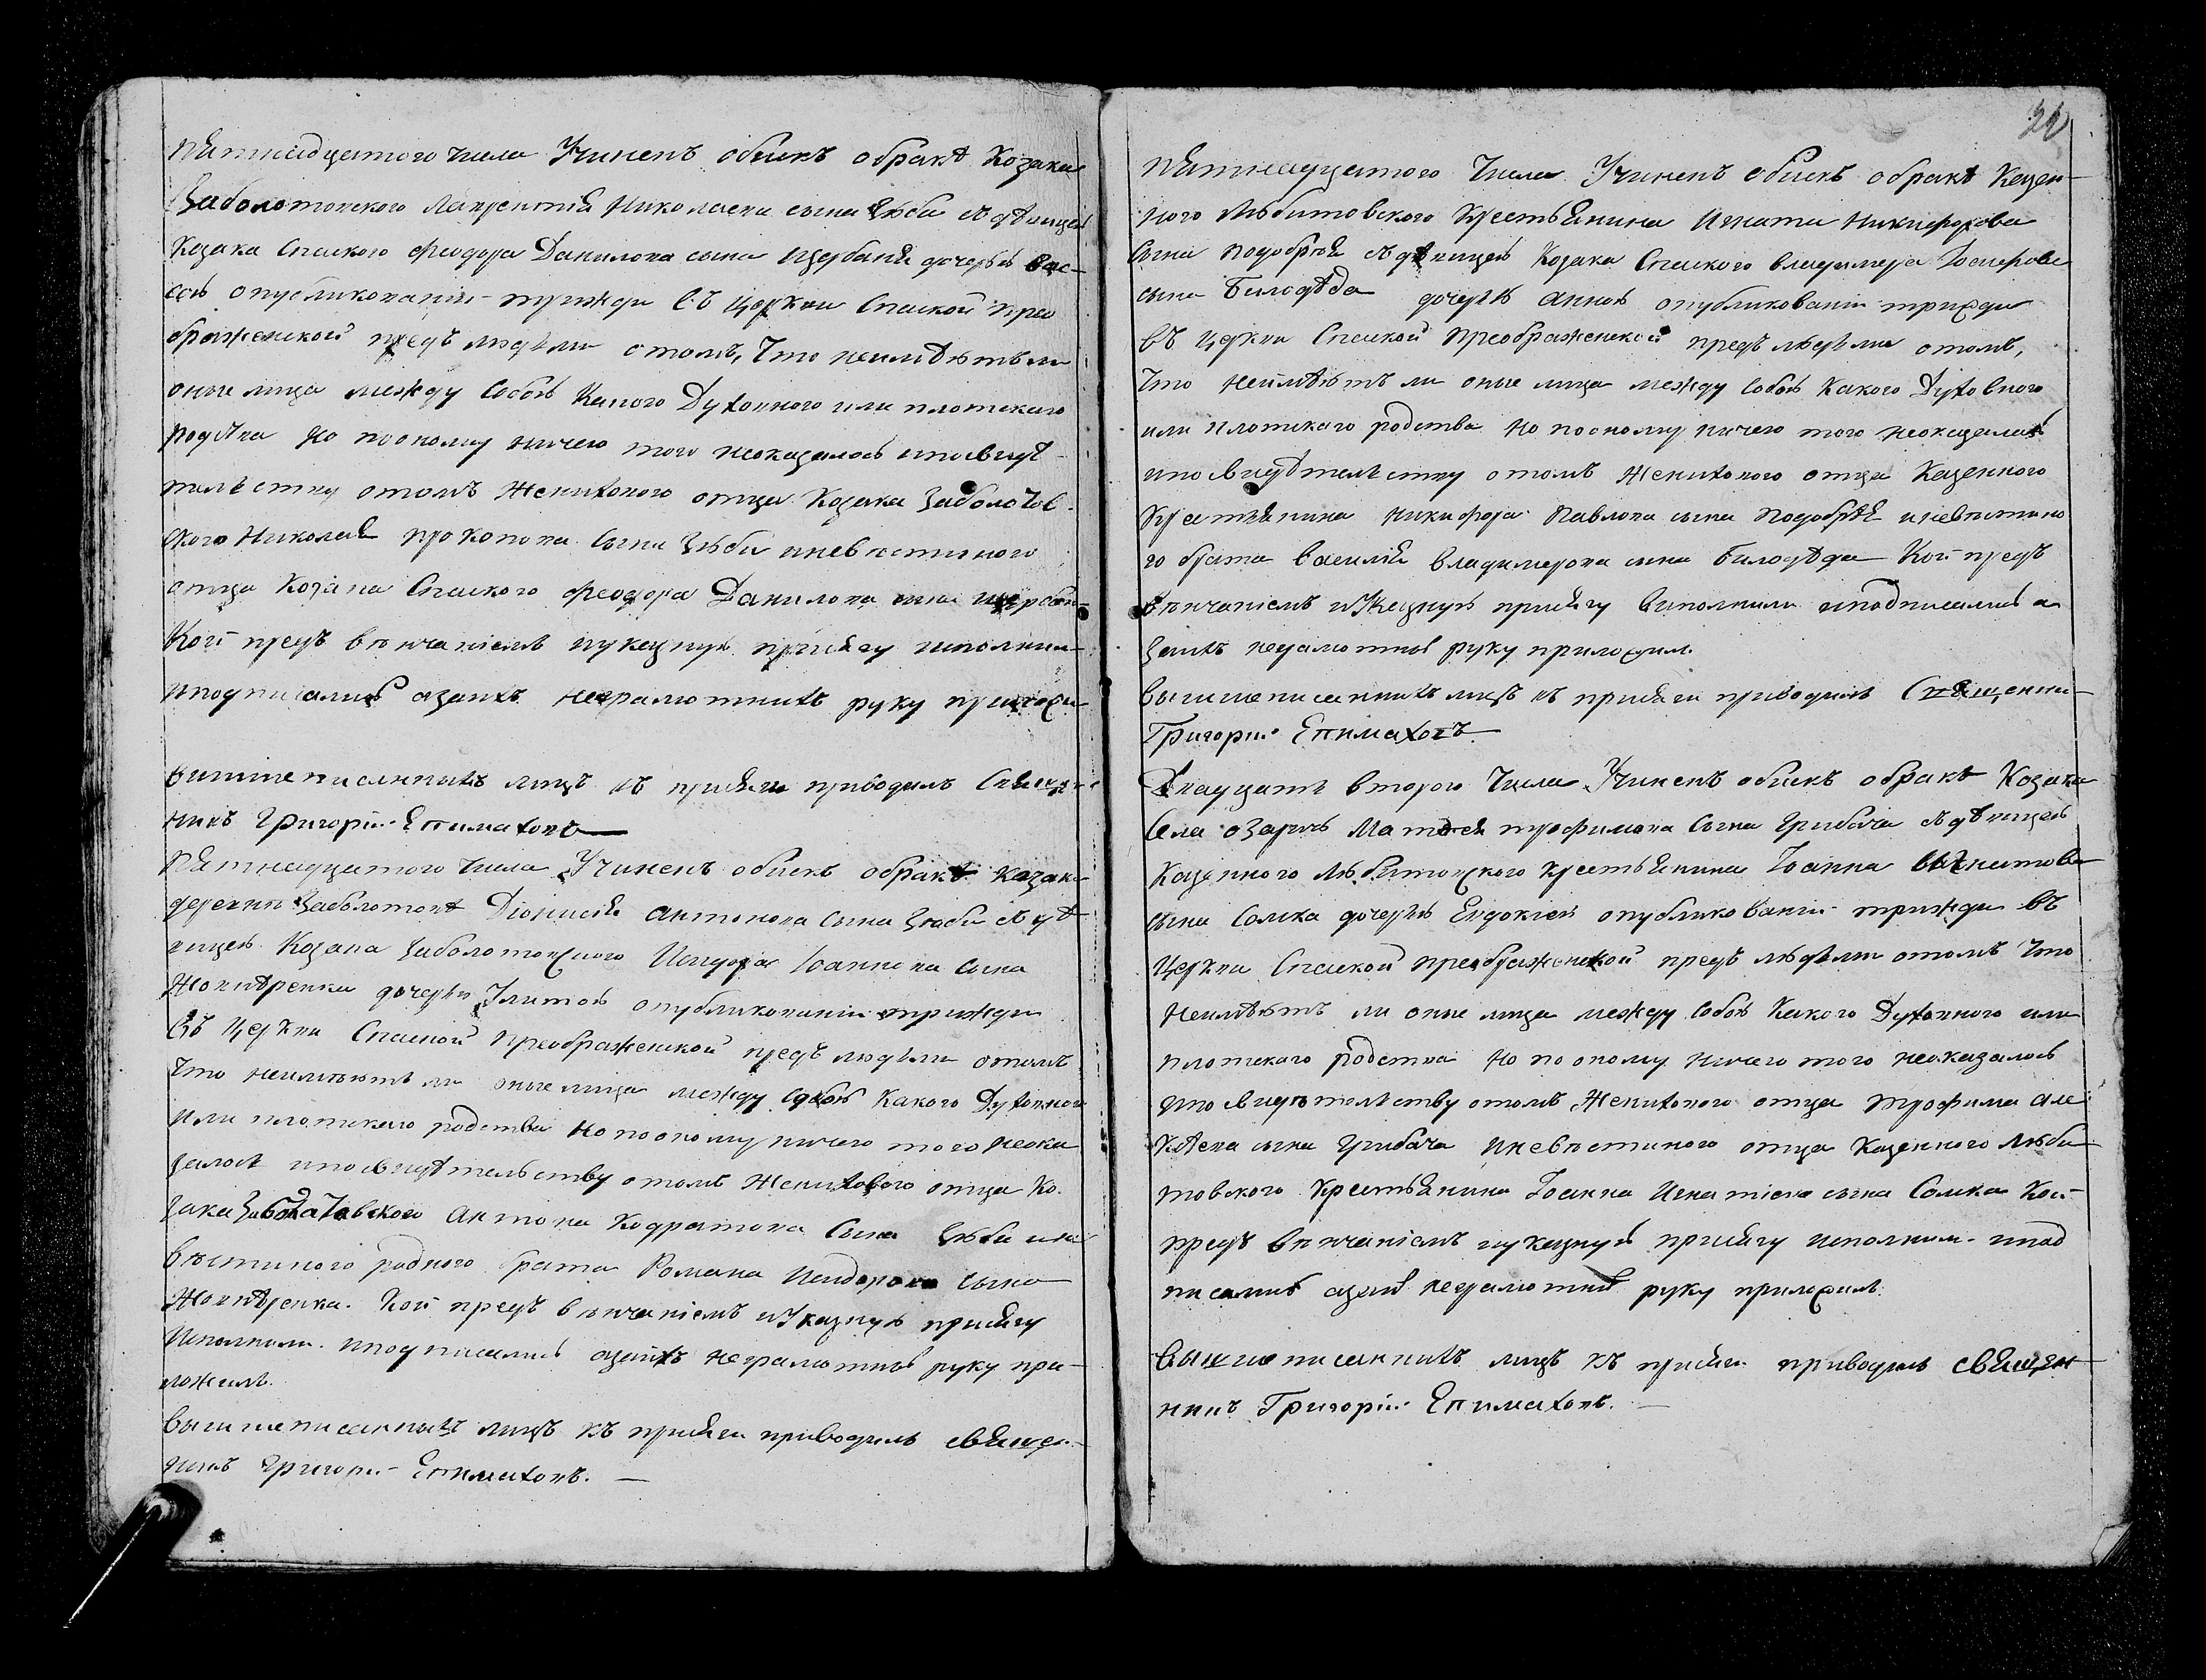 Пятнадцатого числа Учиненъ обыскъ обракѣ Козака
Заболотовского Лаврентія Николаева сына Зюби съ дѣвицею
Козака Спаского Феодора Данилова сына Щербаня дочерью Вас-
сою опубликованіи трижди въ церкви Спаской Прео
браженской предъ людьми отомъ, Что неимѣютъ ли
оные лица между собою Какого Духовного или плотскаго
родства Но пооному ничего того неоказалось ипосвидѣ
тельству отомъ Женихового отца Козака Заболотов-
ского Николая Прокопова сына Зюби иневѣстиного
отца Козака Спаского Феодора Данилова сына Щербаня
Кои предъ вѣнчаніемъ иуказную присягу исполнили
иподписались азаихъ неграмотнихъ руку приложил
вишшеписаннихъ лицъ къ присяги приводилъ Священ
никъ Григорій Епимаховъ
Пятнадцатого числа Учиненъ обыскъ обракѣ козака
деревни Заболотовъ Діонисія Антонова сына Зюби съ дѣ
вицею Козака Заболотовского Исидора Іоаннова сына
Жовнѣренка дочерью Улитою опубликованіи трижди
Въ Церкви Спаской Преображенской предъ людьми отомъ
Что неимѣютъ ли оные лица между собою Какого Духовного
Или плотскаго родства Но пооному ничего того неока
залось ипосвидѣтельству отомъ Женихового отца Ко-
зака Заболотовского Антона Кодратова Сына Зюби ине
вѣстиного родного брата Романа Исидорова сына
Жовнѣренка. Кои предъ вѣнчаніемъ иУказную присягу
Исполнили иподписались азаихъ неграмотныхъ руку при-
ложилъ.
Вышшеписанныхъ лицъ къ присяги приводилъ священ-
никъ Григорій Епимаховъ.
22
Пятнадцатого Числа Учиненъ обискъ обракѣ Казен-
ного Любитовского Крестьянина Игната Никифорова
Сына Подобрѣя съ дѣвицею Козака Спаского Владимера Іосифова
сына Билодѣда дочерью Анною опубликовании трижди
въ церкви Спаской Преображенской предъ людьми отомъ,
Что Неимѣютъ ли оные лица между собою Какого Духовного
или Плотскаго родства Но пооному ничего того неоказалось
ипосвидѣтельству отомъ Женихового отца Казенного
Крестьянина Никифора Павлова сына Подобрѣя иневѣстино
го брата Василія Владимерова сына Билодѣда Кои предъ
вѣнчаніемъ иУказную присягу виполнили иподписались а
заихъ неграмотныхъ руку приложил.
Вышшеписаннихъ лицъ къ присяги приводилъ Священни
Григорій Епимаховъ
Двадцать второго Числа Учиненъ обискъ обракѣ Козака
Села Озарич Матфея Трофимова Сына Грибача съ дѣвицею
Казенного Любитовского крестьянина Іоанна Игнатова
сына Сомка дочерью Евдокіею опубликованіи трижди въ
Церкви Спаской Преображенской предъ людьми отомъ Что
Неимѣютъ ли оные лица между собою Какого Духовного или
плотскаго родства Но по оному ничего того неоказалось
ипосвидѣтельству отомъ Женихового отца Трофима Але
ксѣева сына Грибача Иневѣстиного отца Казенного Люби
товского Крестьянина Іоанна Игнатіева сына Сомка Кои
предъ вѣнчаніемъ иуказную присягу исполнили иподъ
писались азаихъ неграмотныхъ руку приложилъ.
Вышшеписаннихъ лицъ къ присяги приводилъ священ
никъ Григорій Епимаховъ.